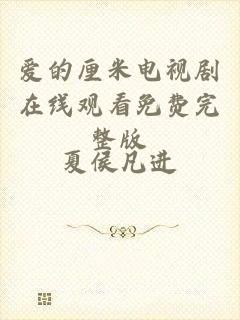 爱的厘米电视剧
在线观看免费完
整版
夏侯凡进